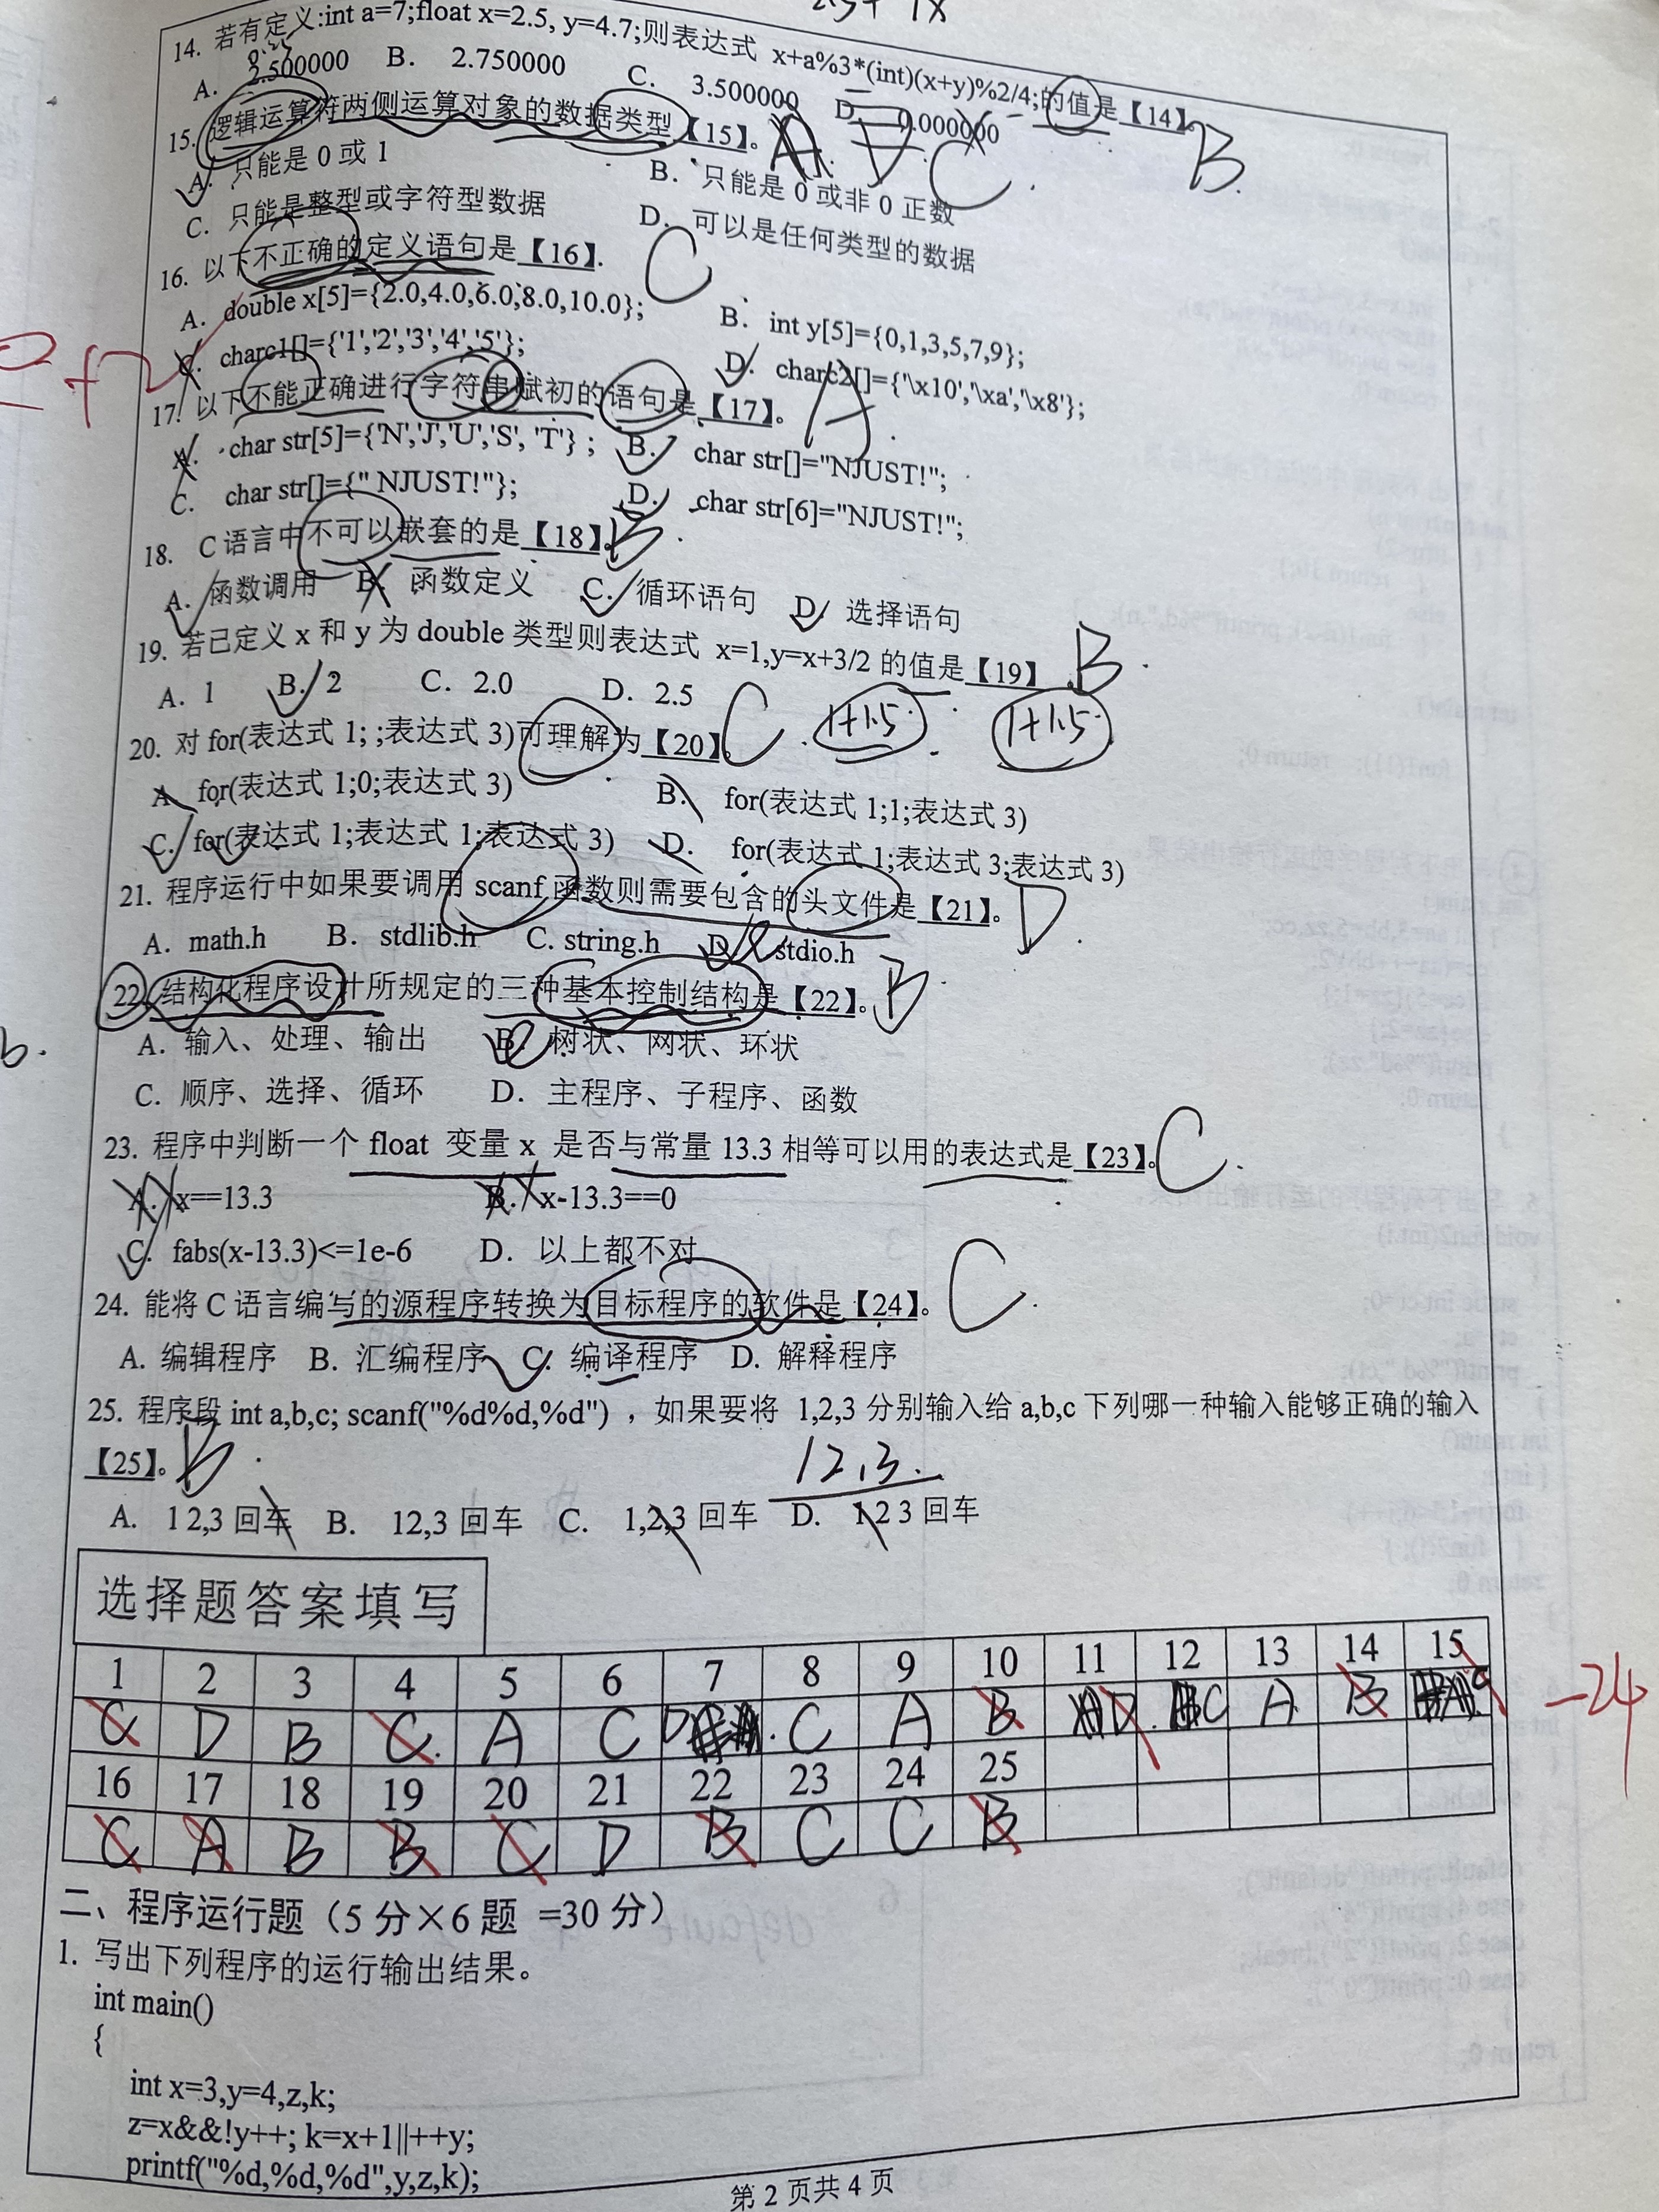 14. 若有定义:int a=7;float x=2.5, y=4.7;则表达式 x+a%3*(int)(x+y)%2/4;的值是【14】。 B
A. 2.500000 B. 2.750000 C. 3.500000 D. 0.000000
15. 逻辑运算符两侧运算对象的数据类型【15】。 C
A. 只能是 0 或 1 B. 只能是 0 或非 0 正数
C. 只能是整型或字符型数据 D. 可以是任何类型的数据
16. 以下不正确的定义语句是【16】. C
A. double x[5]={2.0,4.0,6.0,8.0,10.0}; B. int y[5]={0,1,3,5,7,9};
C. charc1[]={'1','2','3','4','5'}; D. charc2[]={'\x10','\xa','\x8'};
17. 以下不能正确进行字符串赋初的语句是【17】。 A
A. char str[5]={'N','J','U','S', 'T'} ; B. char str[]="NJUST!";
C. char str[]={" NJUST!"}; D. char str[6]="NJUST!";
18. C 语言中不可以嵌套的是【18】 B
A. 函数调用 B. 函数定义 C. 循环语句 D. 选择语句
19. 若已定义 x 和 y 为 double 类型则表达式 x=1,y=x+3/2 的值是【19】 B
A. 1 B. 2 C. 2.0 D. 2.5
20. 对 for(表达式 1; ;表达式 3)可理解为【20】。 C 1+1.5 1+1.5
A. for(表达式 1;0;表达式 3) B. for(表达式 1;1;表达式 3)
C. for(表达式 1;表达式 1;表达式 3) D. for(表达式 1;表达式 3;表达式 3)
21. 程序运行中如果要调用 scanf 函数则需要包含的头文件是【21】。 D
A. math.h B. stdlib.h C. string.h D. stdio.h
22. 结构化程序设计所规定的三种基本控制结构是【22】。 B
A. 输入、处理、输出 B. 树状、网状、环状
C. 顺序、选择、循环 D. 主程序、子程序、函数
23. 程序中判断一个 float 变量 x 是否与常量 13.3 相等可以用的表达式是【23】。 C
A. x==13.3 B. x-13.3==0
C. fabs(x-13.3)<=1e-6 D. 以上都不对
24. 能将 C 语言编写的源程序转换为目标程序的软件是【24】。 C
A. 编辑程序 B. 汇编程序 C. 编译程序 D. 解释程序
25. 程序段 int a,b,c; scanf("%d%d,%d") ，如果要将 1,2,3 分别输入给 a,b,c 下列哪一种输入能够正确的输入
【25】。 B 12,3
A. 1 2,3 回车 B. 12,3 回车 C. 1,2,3 回车 D. 1 2 3 回车
选择题答案填写
1 2 3 4 5 6 7 8 9 10 11 12 13 14 15
C D B C A C D C A B D C A B C
-24
16 17 18 19 20 21 22 23 24 25
C A B B C D B C C B
二、程序运行题（5 分×6 题 =30 分）
1. 写出下列程序的运行输出结果。
int main()
{
int x=3,y=4,z,k;
z=x&&!y++; k=x+1||++y;
printf("%d,%d,%d",y,z,k);
第 2 页共 4 页